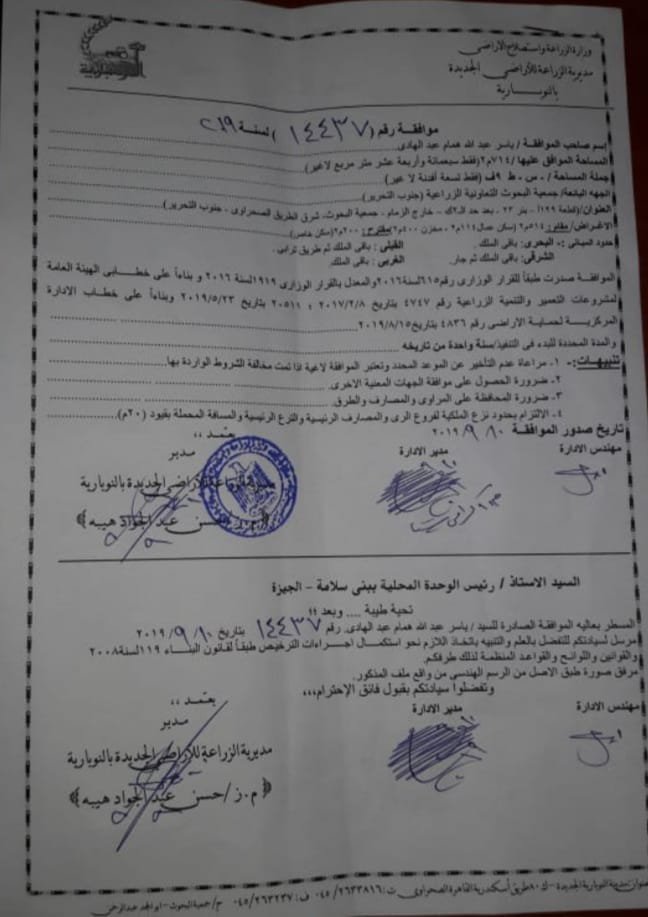 وزارة الزراعة واستصلاح الاراضى
مديرية الزراعة للأراضى الجديدة
بالنوبارية
موافقة رقم (١٤٤٣٧) لسنة ٢٠١٩
إسم صاحب الموافقة / ياسر عبد الله همام عبد الهادى.
المساحة الموافق عليها /٧١٤م٢ (فقط سبعمائة وأربعة عشر متر مربع لاغير)
جملة المساحة / - س - ط ٩ف (فقط تسعة أفدنة لا غير)
الجهه البائعة/ جمعية البحوث التعاونية الزراعية (جنوب التحرير)
العنوان/ (قطعة ١٢٩أ - بئر ٢٣ - بعد حد الـ٢ك - خارج الزمام - جمعية البحوث- شرق الطريق الصحراوى - جنوب التحرير)
الاغراض/ مقام: ٥١٤م٢ (سكن عمال ١١٤م٢ - مخزن ٤٠٠م٢) مقترح: ٢٠٠م٢ (سكن خاص)
حدود المبانى :- البحرى: باقى الملك. القبلى : باقى الملك ثم طريق ترابى.
الشرقى: باقى الملك ثم جار. الغربى : باقى الملك.
الموافقة صدرت طبقاً للقرار الوزارى رقم ٦١٥لسنة٢٠١٦ والمعدل بالقرار الوزارى ١٩١٩لسنة ٢٠١٦ و بناءاً على خطابى الهيئة العامة
لمشروعات التعمير والتنمية الزراعية رقم ٤٧٤٧ بتاريخ ٢٠١٧/٢/٨ ، ٢٠٥١١ بتاريخ ٢٠١٩/٥/٢٣ وبناءاً على خطاب الادارة
المركزية لحماية الاراضى رقم ٤٨٣٦ بتاريخ٢٠١٩/٨/١٥
والمدة المحددة للبدء فى التنفيذ/سنة واحدة من تاريخه
تنبيهات:- ١- مراعاة عدم التأخير عن الموعد المحدد وتعتبر الموافقة لاغية اذا تمت مخالفة الشروط الواردة بها.
٢- ضرورة الحصول على موافقة الجهات المعنية الاخرى.
٣- ضرورة المحافظة على المراوى والمصارف والطرق.
٤- الالتزام بحدود نزع الملكية لفروع الرى والمصارف الرئيسية والترع الرئيسية والمسافة المحملة بقيود (٢٠م)
تاريخ صدور الموافقة ٢٠١٩/٩/١٠
مهندس الادارة مدير الادارة يعتمد ،،
مدير
مديرية الزراعة للأراضى الجديدة بالنوبارية
(م.ز/حسن عبد الجواد هيبه)
السيد الاستاذ / رئيس الوحدة المحلية ببنى سلامة - الجيزة
تحية طيبة .... وبعد !!
المسطر بعاليه الموافقة الصادرة للسيد / ياسر عبد الله همام عبد الهادى. رقم ١٤٤٣٧ بتاريخ ٢٠١٩/٩/١٠
مرسل لسيادتكم للتفضل بالعلم والتنبيه باتخاذ اللازم نحو استكمال اجراءات الترخيص طبقاً لقانون البناء ١١٩لسنة٢٠٠٨
والقوانين واللوائح والقواعد المنظمة لذلك طرفكم.
مرفق صورة طبق الاصل من الرسم الهندسى من واقع ملف المذكور.
وتفضلوا سيادتكم بقبول فائق الإحترام،،،
مهندس الادارة مدير الادارة يعتمد ،،
مدير
مديرية الزراعة للأراضى الجديدة بالنوبارية
(م.ز/حسن عبد الجواد هيبه)
عنوان: مدينة النوبارية الجديدة - ك٨٠ طريق أسكندرية القاهرة الصحراوى ت: ٠٤٥/٢٦٣٣٨١٦ ف: ٠٤٥/٢٦٣٢٣٧ م/جمعية البحوث - ابو المجد عبدالرحمن